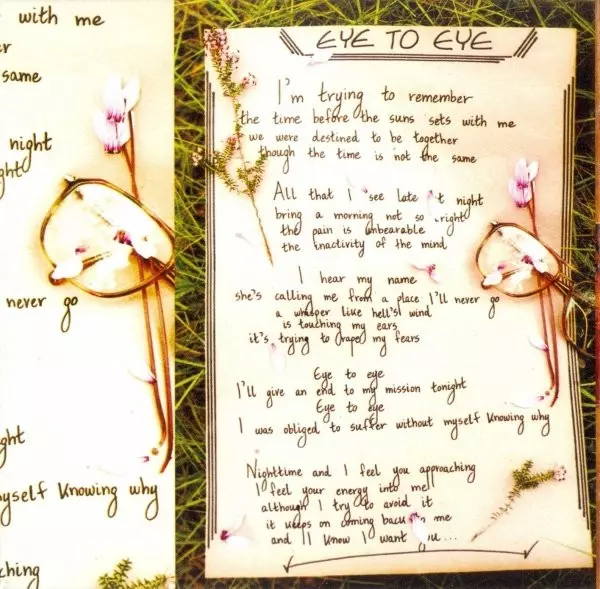 with me
er
same
night
ght
never go
ght
myself Knowing why
ching
EYE TO EYE
I'm trying to remember
the time before the suns sets with me
we were destined to be together
though the time is not the same
All that I see late at night
bring a morning not so right
the pain is unbearable
the inactivity of the mind
I hear my name
she's calling me from a place I'll never go
a whisper like hell's wind
is touching my ears
it's trying to rape my fears
Eye to eye
I'll give an end to my mission tonight
Eye to eye
I was obliged to suffer without myself Knowing why
Nighttime and I feel you approaching
I feel your energy into me
although I try to avoid it
it keeps on coming back to me
and I Know I want you...